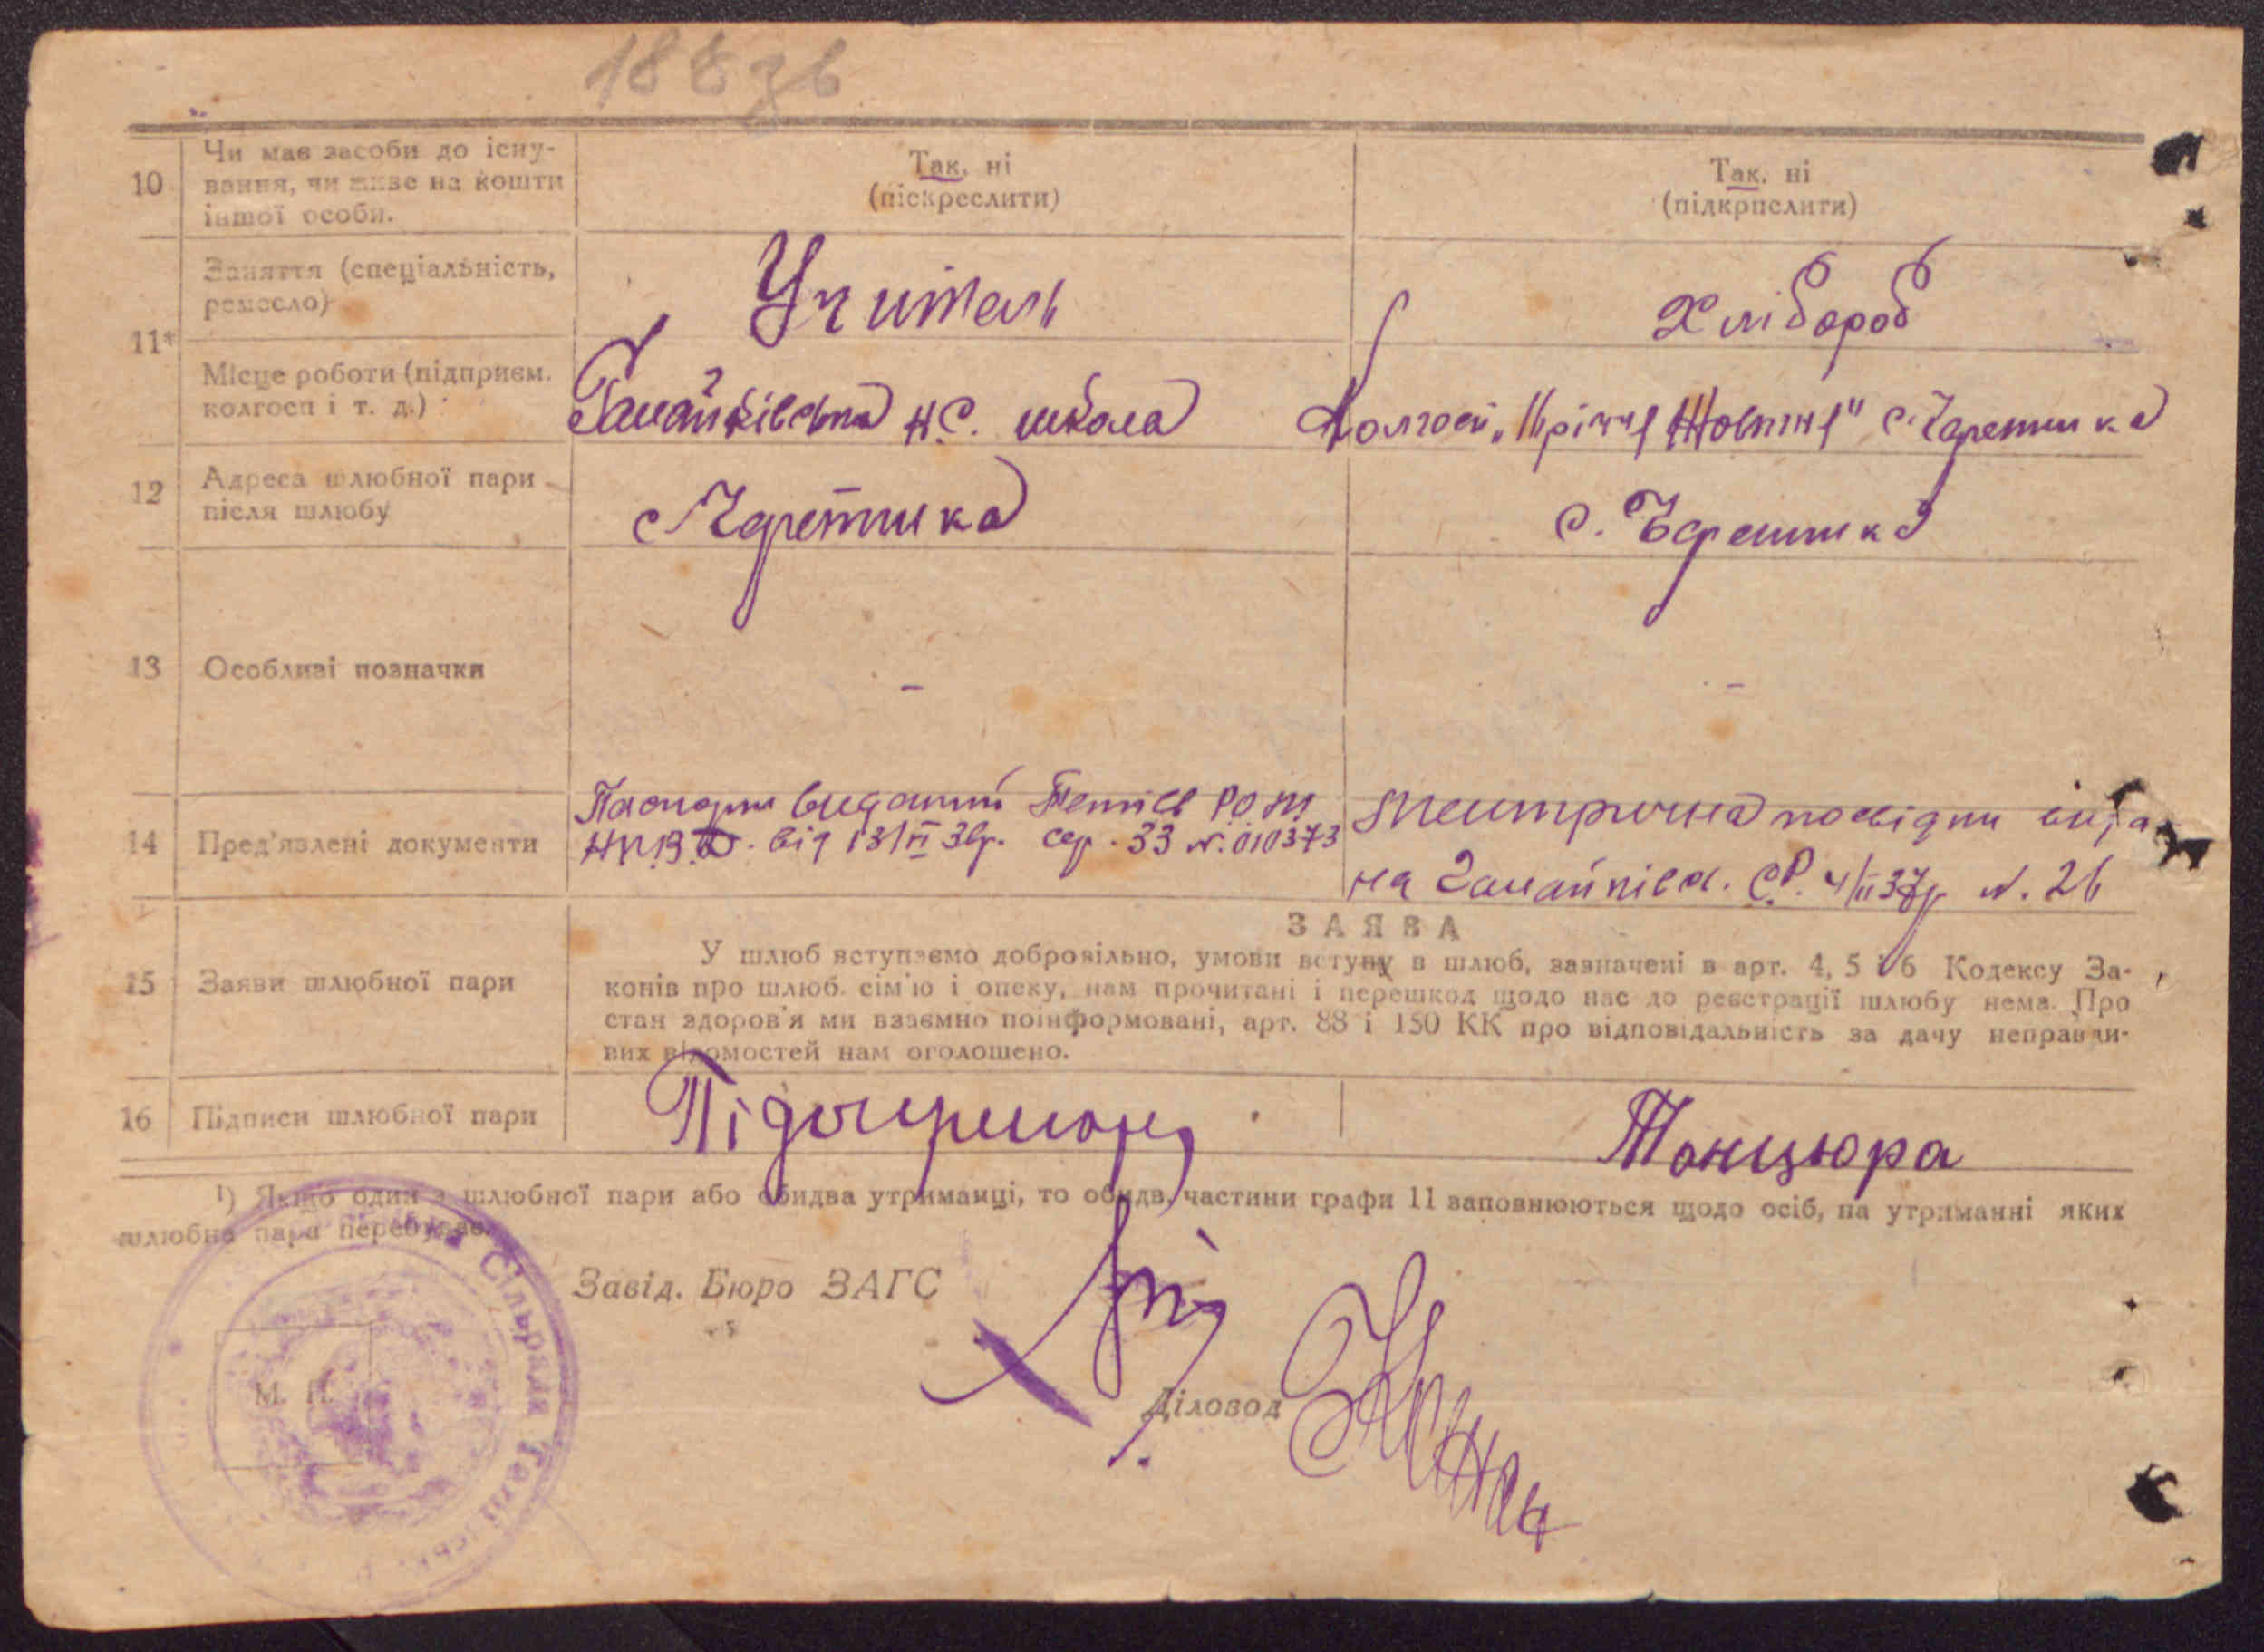 188 зв
10 Чи має засоби до існу-
вання, чи живе на кошти
іншої особи.
Так, ні
(піскреслити)
Так, ні
(підкрпслити)
11*
Заняття (спеціальність,
ремесло)
Учитель
Хлібороб
Місце роботи (підприєм.
колгосп і т. д.)
Н.С. школа
Колгосп "Жовтня" с.
12 Адреса шлюбної пари
після шлюбу
с.
с.
13 Особливі позначки
-
-
14 Пред'явлені документи
Паспорт виданий РОМ
НКВД. від 13/VI 36р. сер. 33 №. 010373
Метрична посвідки вида
на С.Р. 4/II 37р №. 26
15 Заяви шлюбної пари
ЗАЯВА
У шлюб вступаємо добровільно, умови вступу в шлюб, зазначені в арт. 4, 5 і 6 Кодексу За-
конів про шлюб. сім'ю і опеку, нам прочитані і перешкод щодо нас до реєстрації шлюбу нема. Про
стан здоров'я ми взаємно поінформовані, арт. 88 і 150 КК про відповідальність за дачу неправди-
вих відомостей нам оголошено.
16 Підписи шлюбної пари
Танцюра
1) Якщо один з шлюбної пари або обидва утриманці, то обидв. частини графи 11 заповнюються щодо осіб, на утриманні яких
шлюбна пара перебуває.
Завід. Бюро ЗАГС
Діловод
М. П.
Сільрада